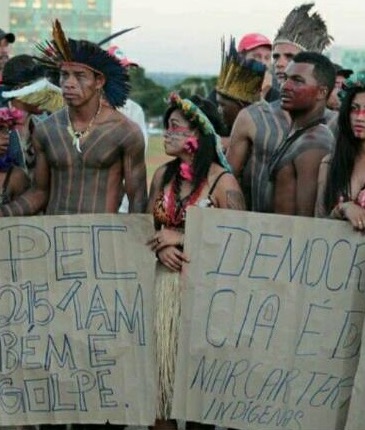 PEC
215 TAM
BÉM E
GOLPE.
DEMOCR
CIA É D
MARCAR TER
INDÍGENAS